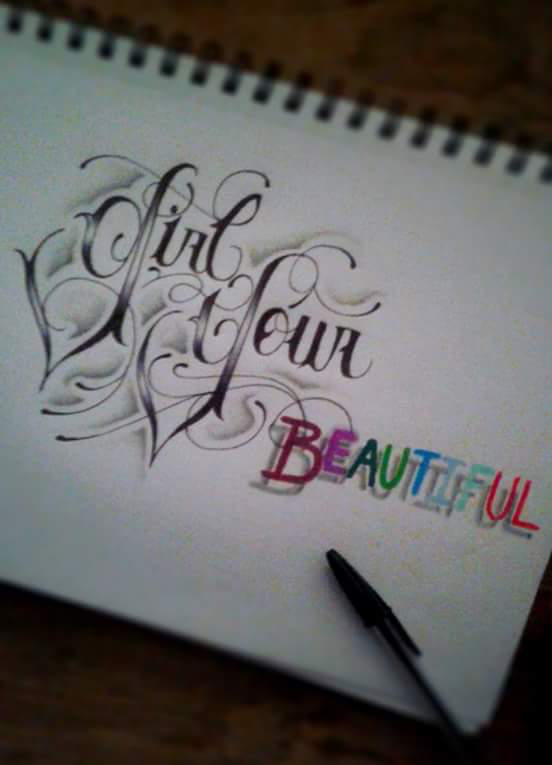 Girl
Your
BEAUTIFUL